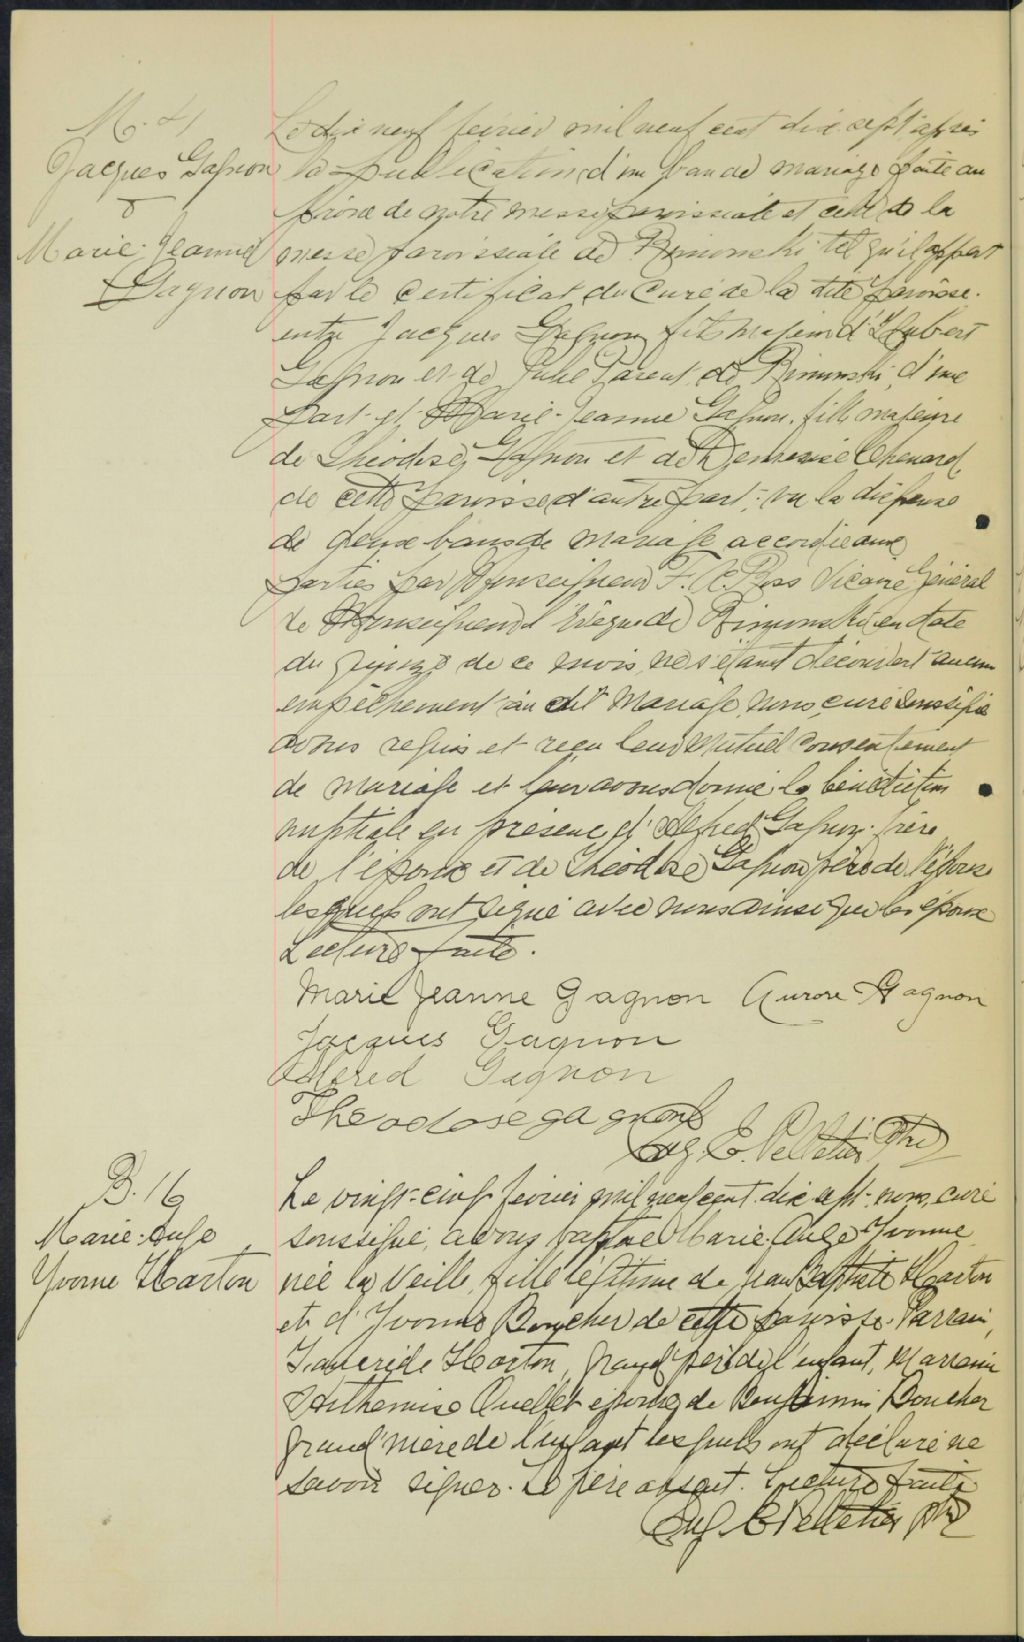 M. 4
Jacques Gagnon
&
Marie-Jeanne
Gagnon
Le dix neuf février mil neuf cent dix sept après
la publication d'un ban de mariage faite au
prône de notre messe paroissiale et celui de la
messe paroissiale de Rimouski tel qu'il appert
par le certificat du curé de la dite paroisse.
entre Jacques Gagnon fils majeur d'Hubert
Gagnon et de Julie Parent de Rimouski, d'une
part et Marie-Jeanne Gagnon, fille majeure
de Théodose Gagnon et de Chenard,
de cette paroisse d'autre part; vu la dispense
de deux bans de mariage accordée aux
parties par Monseigneur F. X. Ross Vicaire Général
de Monseigneur l'Évêque de Rimouski en date
du quinze de ce mois, ne s'étant découvert aucun
empêchement au dit mariage, nous, curé soussigné
avons requis et reçu leur mutuel consentement
de mariage et leur avons donné la bénédiction
nuptiale en présence d'Alfred Gagnon frère
de l'époux et de Théodose Gagnon père de l'épouse
lesquels ont signé avec nous ainsi que les époux
Lecture faite.
Marie Jeanne Gagnon Aurore Gagnon
Jacques Gagnon
Alfred Gagnon
Theodose gagnon
Eug. E. Pelletier Ptre
B. 16
Marie-Ange
Yvonne Harton
Le vingt-cinq février mil neuf cent dix sept nous, curé
soussigné, avons baptisé Marie-Ange-Yvonne
née la veille, fille légitime de Jean Baptiste Harton
et d'Yvonne Boucher de cette paroisse. Parrain,
Harton, grand'père de l'enfant, Marraine
Arthémise Ouellet épouse de Benjamin Boucher
grand'mère de l'enfant lesquels ont déclaré ne
savoir signer. Le père absent. Lecture faite
Eug. E. Pelletier ptre